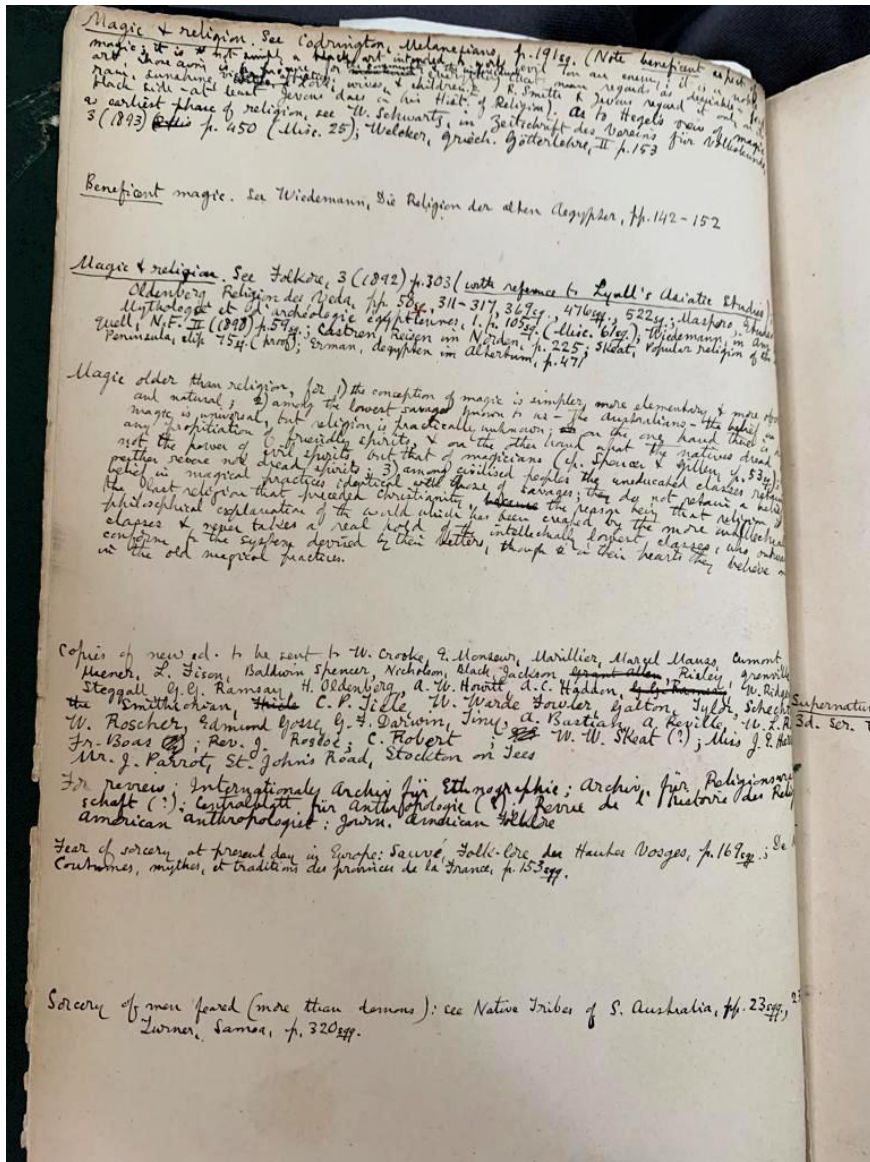 Magic & religion. See Codrington, Melanesians, p. 191 sq. (Note beneficent aspect of
magic; it is not simply a black art intended to work evil on an enemy, it is
art whose aim is to procure for
rain, sunshine, wives, & children.) R. Smith & Jevons regard only
black side - at least Jevons does in his Hist. of Religion). As to Hegel's view of magic
as earliest phase of religion, see W. Schwartz, in Zeitschrift des Vereins für Volkskunde,
3 (1893) p. 450 (Misc. 25); Welcker, Griech. Götterlehre, II p. 153
Beneficent magic. See Wiedemann, Die Religion der alten Aegypter, pp. 142-152
Magic & religion. See Folklore, 3 (1892) p. 303 (with reference to Lyall's Asiatic Studies);
Oldenberg, Religion des Veda, pp. 58 sq., 311-317, 369 sq., 476 sqq., 522 sq.; Maspero, Études
Mythologie et d'archéologie égyptiennes, 1. p. 105 sq. (Misc. 61 sq.); Wiedemann, in Am
Quell, N.F. II (1898) p. 59 sq.; Castren, Reisen im Norden, p. 225; Skeat, Popular religion of the
Peninsula, slip 75 sq. (proof); Erman, Aegypten im Alterthum, p. 471
Magic older than religion, for 1) the conception of magic is simpler, more elementary, & more
and natural; 2) among the lowest savages known to us - the Australians - the belief in
magic is universal, but religion is practically unknown; on the one hand there is
any propitiation of friendly spirits, & on the other hand what the natives dread
not the power of evil spirits but that of magicians (cp. Spencer & Gillen, p. 53
neither revere nor dread spirits; 3) among civilised peoples the uneducated classes retain
belief in magical practices identical with those of savages; they do not retain a belief
the last religion that preceded Christianity, the reason being that religion is
philosophical explanation of the world which has been created by the more intellectual
classes & never takes a real hold of the intellectually lowest classes, who
conform to the system devised by their betters, though in their hearts they believe
in the old magical practices.
Copies of new ed. to be sent to W. Crooke, E. Monseur, Marillier, Marcel Mauss, Cumont
L. Fison, Baldwin Spencer, Nicholson, Black, Jackson, Grant Allen, Risley, Grenville
Steggall, G.G. Ramsay, H. Oldenberg, A.W. Howitt, A.C. Haddon, G.G. Ramsay, W. Ridge
the Smithsonian, Thiele C.P. Tiele, W. Warde Fowler, Galton, Tylor, Schech
W. Roscher, Edmund Gosse, G.F. Darwin, A. Bastian, A. Reville, W.L.R
Fr. Boas; Rev. J. Roscoe; C. Robert; W.W. Skeat (?); Miss J.E. Har
Mr. J. Parrot, St. John's Road, Stockton on Tees
For review: Internationales Archiv für Ethnographie; Archiv für Religionswis
schaft (?); Centralblatt für Anthropologie (?); Revue de l'histoire des Reli
American Anthropologist; Journ. American Folklore
Fear of sorcery at present day in Europe: Sauvé, Folk-lore des Hautes Vosges, p. 169 sqq.; De
Coutumes, mythes, et traditions des provinces de la France, p. 153 sqq.
Sorcery of men feared (more than demons): see Native Tribes of S. Australia, pp. 23 sqq.,
Turner, Samoa, p. 320 sqq.
Supernatur
3d. Ser.